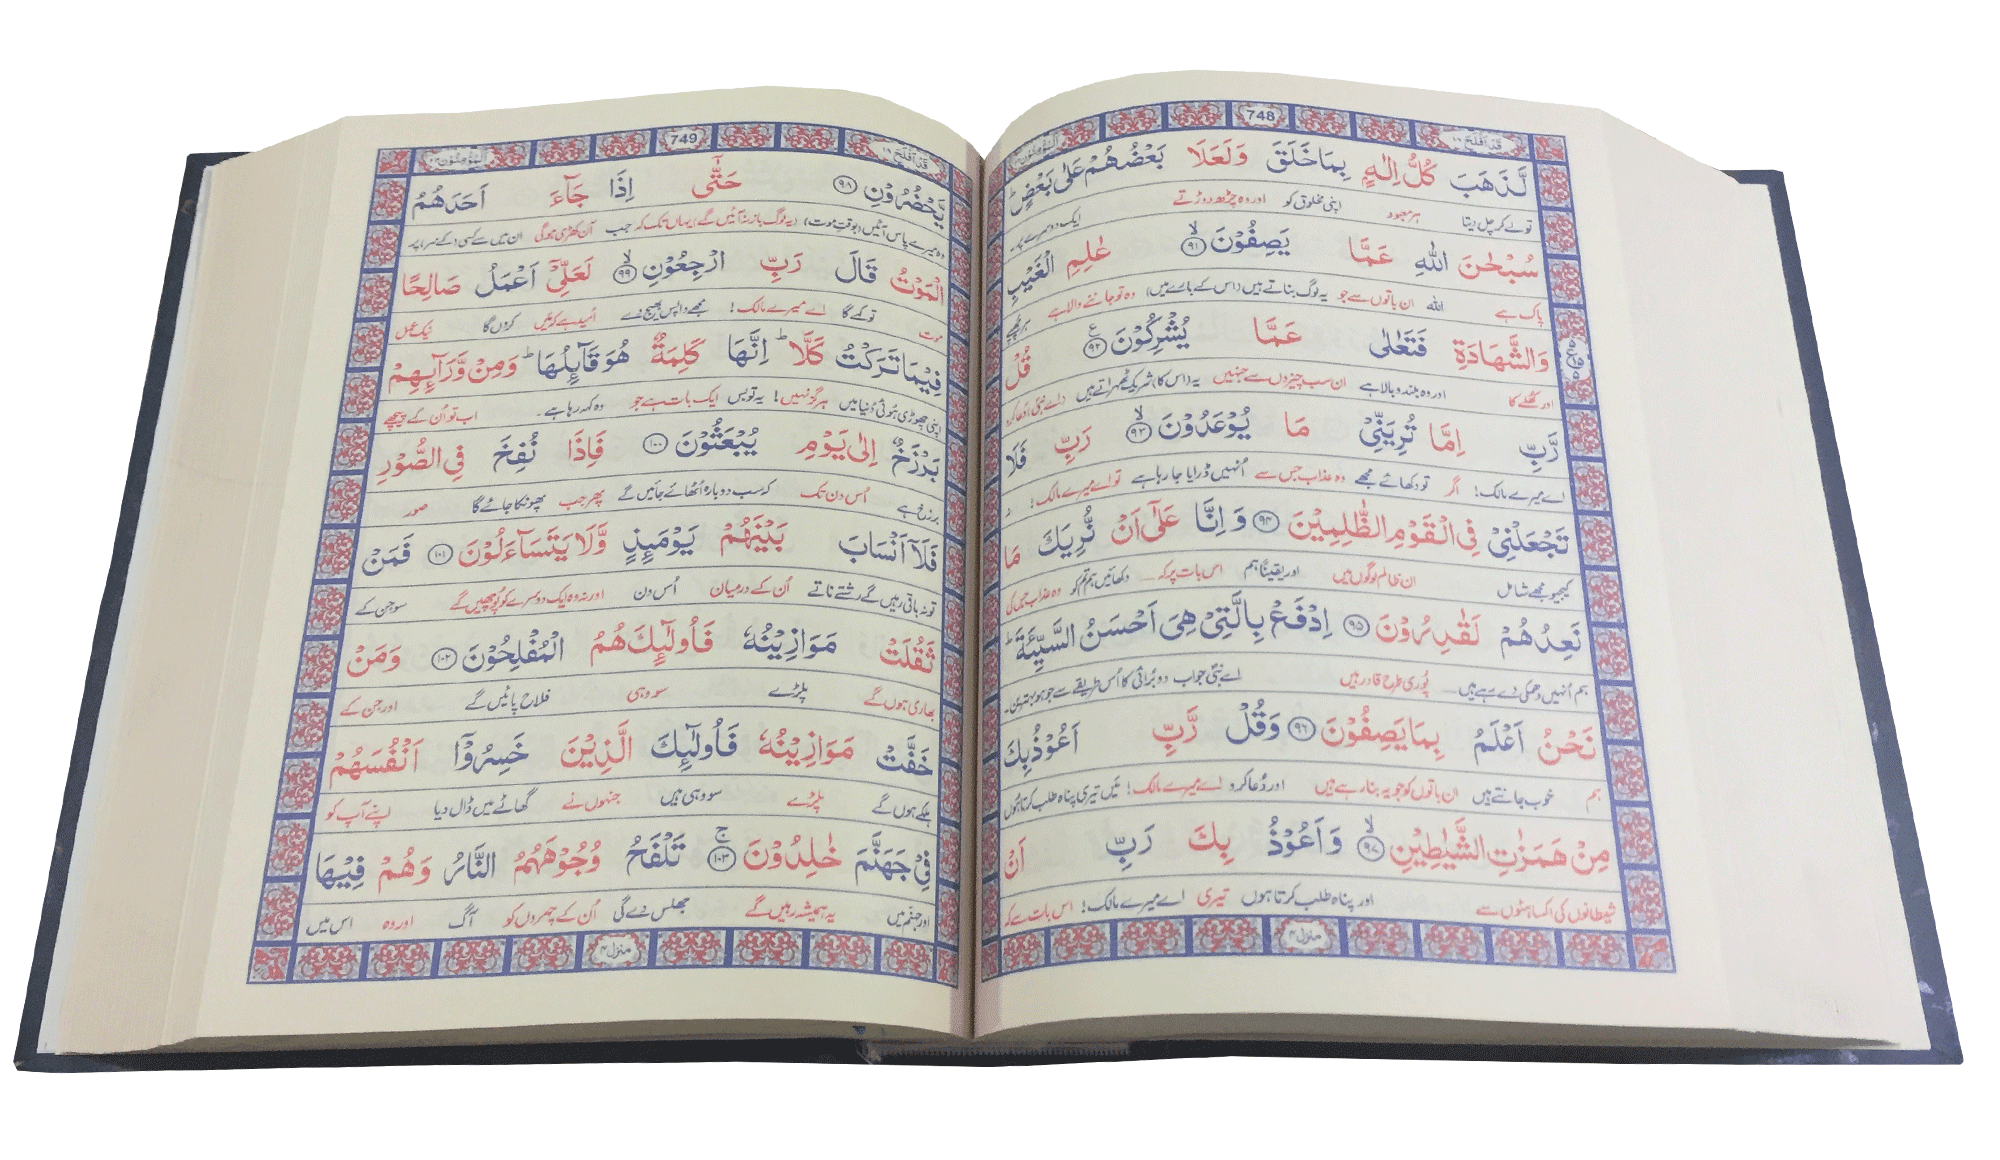 قَدْ اَفْلَحَ ١٨
748
اَلْمُؤْمِنُوْن ٢٣
لَّذَهَبَ كُلُّ اِلٰهٍۭ بِمَا خَلَقَ وَلَعَلَا بَعْضُهُمْ عَلٰى بَعْضٍ ؕ
تو لے کر چل دیتا ہر معبود اپنی مخلوق کو اور وہ چڑھ دوڑتے ایک دوسرے پر۔
سُبْحٰنَ اللّٰهِ عَمَّا يَصِفُوْنَ ۙ﴿٩١﴾ عٰلِمِ الْغَيْبِ
پاک ہے اللہ ان باتوں سے جو یہ لوگ بناتے ہیں (اس کے بارے میں) وہ تو جاننے والا ہے ہر چھپے
وَالشَّهَادَةِ فَتَعٰلٰى عَمَّا يُشْرِكُوْنَ ﴿٩٢﴾ ع قُلْ
اور کھلے کا اور وہ بلند و بالا ہے ان سب چیزوں سے جنہیں یہ (اس کا) شریک ٹھہراتے ہیں (اے نبی) دعا کرو
رَّبِّ اِمَّا تُرِيَنِّيْ مَا يُوْعَدُوْنَ ۙ﴿٩٣﴾ رَبِّ فَلَا
اے میرے مالک! اگر تو دکھائے مجھے وہ عذاب جس سے اُنہیں ڈرایا جا رہا ہے تو اے میرے مالک! نہ
تَجْعَلْنِيْ فِي الْقَوْمِ الظّٰلِمِيْنَ ﴿٩٤﴾ وَاِنَّا عَلٰٓى اَنْ نُّرِيَكَ مَا
کیجیو مجھے شامل ان ظالم لوگوں میں اور یقیناً ہم اس بات پر کہ ــ دکھائیں ہم تم کو وہ عذاب جس کی
نَعِدُهُمْ لَقٰدِرُوْنَ ﴿٩٥﴾ اِدْفَعْ بِالَّتِيْ هِيَ اَحْسَنُ السَّيِّئَةَ ؕ
ہم اُنہیں دھمکی دے رہے ہیں ــ پُوری طرح قادر ہیں اے نبیؐ جواب دو بُرائی کا اُس طریقے سے جو ہو بہترین۔
نَحْنُ اَعْلَمُ بِمَا يَصِفُوْنَ ﴿٩٦﴾ وَقُلْ رَّبِّ اَعُوْذُ بِكَ
ہم خوب جانتے ہیں ان باتوں کو جو یہ بنا رہے ہیں اور دُعا کرو اے میرے مالک! میں تیری پناہ طلب کرتا ہُوں
مِنْ هَمَزٰتِ الشَّيٰطِيْنِ ۙ﴿٩٧﴾ وَاَعُوْذُ بِكَ رَبِّ اَنْ
شیطانوں کی اکساہٹوں سے اور پناہ طلب کرتا ہوں تیری اے میرے مالک! اس بات سے کہ
منزل ٤
قَدْ اَفْلَحَ ١٨
749
اَلْمُؤْمِنُوْن ٢٣
يَّحْضُرُوْنِ ﴿٩٨﴾ حَتّٰٓى اِذَا جَآءَ اَحَدَهُمُ
وہ میرے پاس آئیں (بوقتِ موت) (یہ لوگ باز نہ آئیں گے) یہاں تک کہ جب آن کھڑی ہوگی ان میں سے کسی (کے سر) پر
الْمَوْتُ قَالَ رَبِّ ارْجِعُوْنِ ۙ﴿٩٩﴾ لَعَلِّيْٓ اَعْمَلُ صَالِحًا
موت تو کہے گا اے میرے مالک! مجھے واپس بھیج دے اُمید ہے کہ میں کروں گا نیک عمل
فِيْمَا تَرَكْتُ كَلَّا ؕ اِنَّهَا كَلِمَةٌ هُوَ قَآئِلُهَا ؕ وَمِنْ وَّرَآئِهِمْ
اپنی چھوڑی ہوئی دُنیا میں ہرگز نہیں! یہ تو بس ایک بات ہے جو وہ کہہ رہا ہے۔ اب تو اُن کے پیچھے
بَرْزَخٌ اِلٰى يَوْمِ يُبْعَثُوْنَ ﴿١٠٠﴾ فَاِذَا نُفِخَ فِي الصُّوْرِ
برزخ ہے اُس دن تک کہ سب دوبارہ اُٹھائے جائیں گے پھر جب پھونکا جائے گا صور
فَلَآ اَنْسَابَ بَيْنَهُمْ يَوْمَئِذٍ وَّلَا يَتَسَآءَلُوْنَ ﴿١٠١﴾ فَمَنْ
تو نہ باقی رہیں گے رشتے ناتے اُن کے درمیان اُس دن اور نہ وہ ایک دوسرے کو پوچھیں گے سو جن کے
ثَقُلَتْ مَوَازِيْنُهٗ فَاُولٰٓئِكَ هُمُ الْمُفْلِحُوْنَ ﴿١٠٢﴾ وَمَنْ
بھاری ہوں گے پلڑے سو وہی فلاح پائیں گے اور جن کے
خَفَّتْ مَوَازِيْنُهٗ فَاُولٰٓئِكَ الَّذِيْنَ خَسِرُوْٓا اَنْفُسَهُمْ
ہلکے ہوں گے پلڑے سو وہی ہیں جنہوں نے گھاٹے میں ڈال دیا اپنے آپ کو
فِيْ جَهَنَّمَ خٰلِدُوْنَ ۚ﴿١٠٣﴾ تَلْفَحُ وُجُوْهَهُمُ النَّارُ وَهُمْ فِيْهَا
اور جہنّم میں یہ ہمیشہ رہیں گے جھلس دے گی اُن کے چہروں کو آگ اور وہ اس میں
منزل ٤